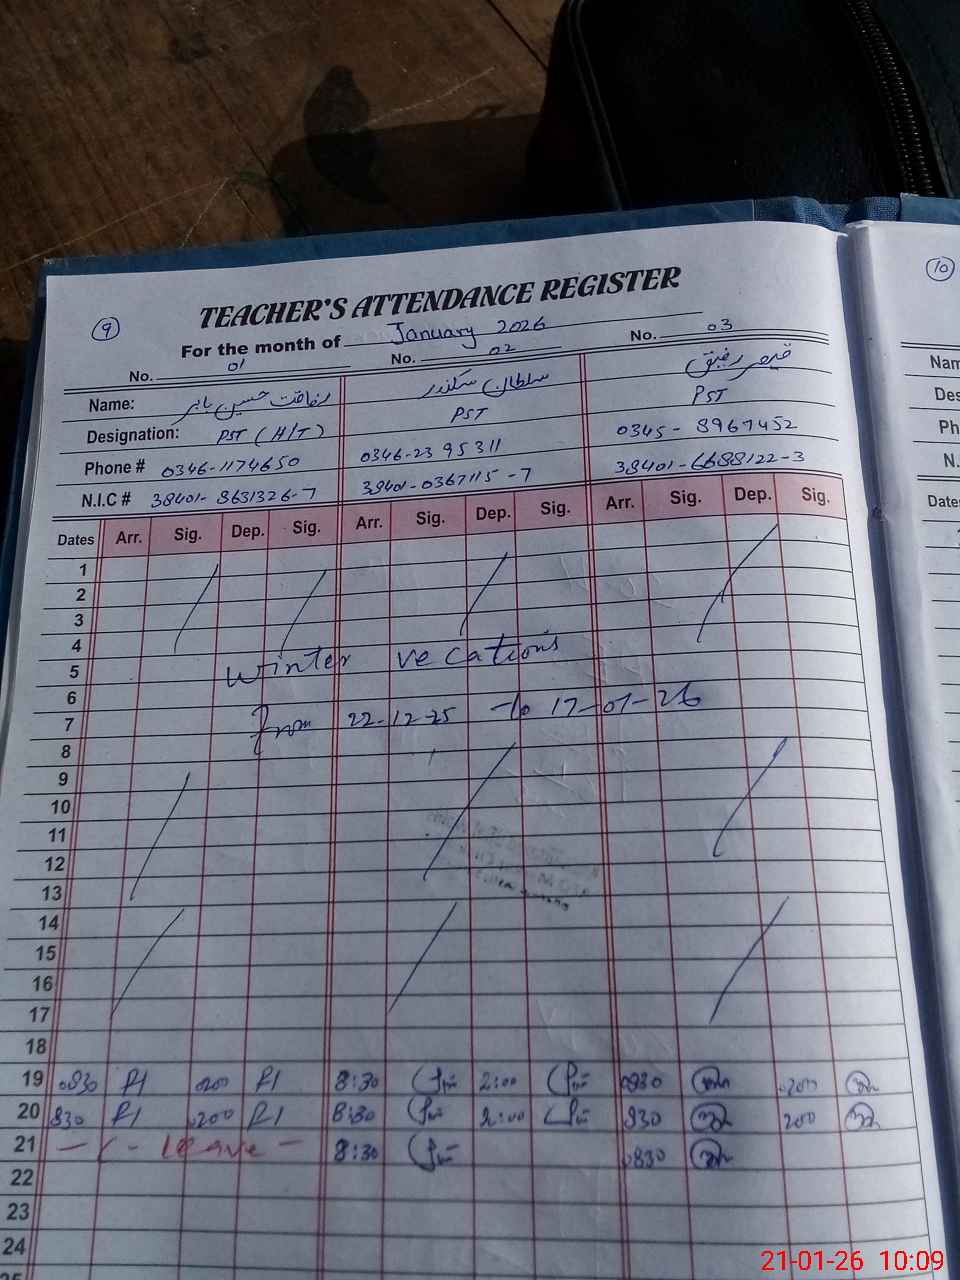 9
10
TEACHER'S ATTENDANCE REGISTER
For the month of January 2026
No. 01 No. 02 No. 03
Name: رفاقت حسین بابر سلطان سکندر قیصر رفیق
Designation: PST (H/T) PST PST
Phone # 0346-1174650 0346-2395311 0345-8967452
N.I.C # 38401-8631326-7 38401-0367115-7 38401-6688122-3
Dates Arr. Sig. Dep. Sig. Arr. Sig. Dep. Sig. Arr. Sig. Dep. Sig.
1
2
3
4
Winter vecations
5
6
From 22-12-25 to 17-01-26
7
8
9
10
11
12
13
14
15
16
17
18
19 0830 0200 8:30 2:00 0830 0200
20 830 0200 8:30 2:00 830 200
21 Leave 8:30 0830
22
23
24
25
Nam
Des
Ph
N.
Dates
21-01-26 10:09